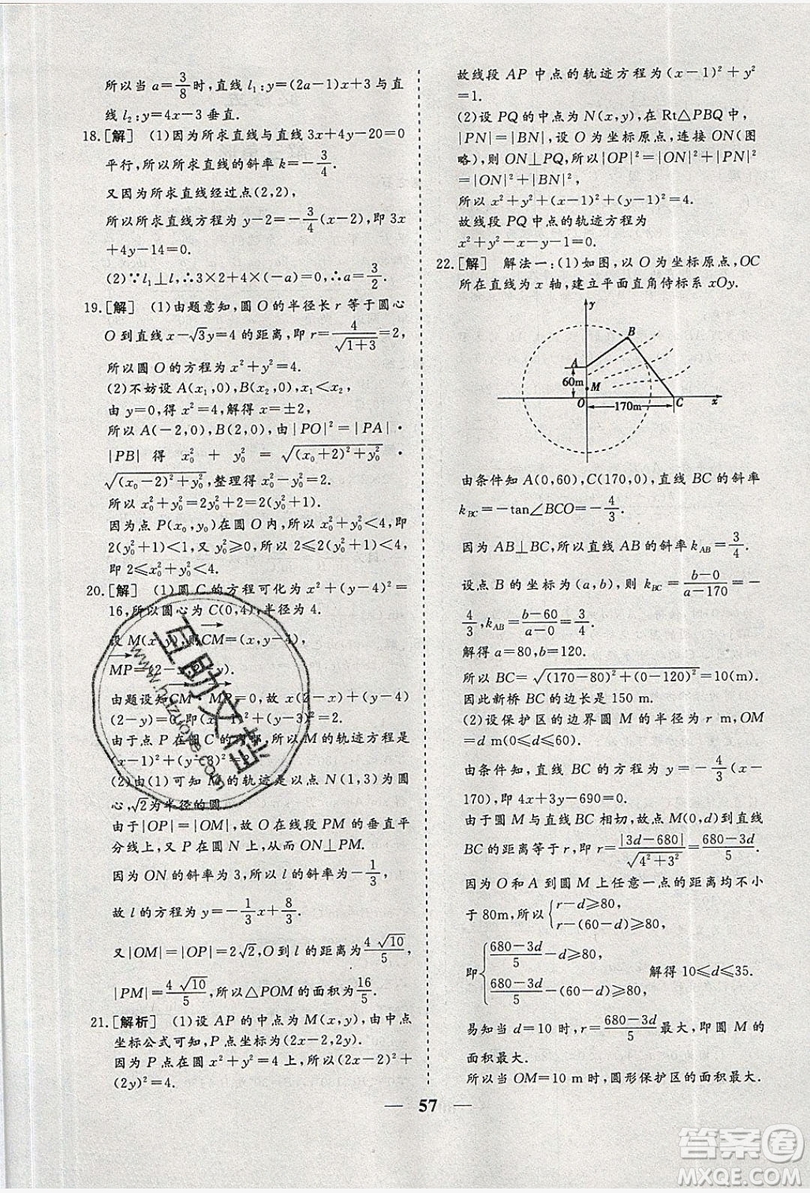 所以当 a=3/8 时,直线 l₁:y=(2a-1)x+3 与直
线 l₂:y=4x-3 垂直.
18.[解] (1)因为所求直线与直线 3x+4y-20=0
平行,所以所求直线的斜率 k=-3/4.
又因为所求直线经过点(2,2),
所以所求直线方程为 y-2=-3/4(x-2),即 3x
+4y-14=0.
(2)∵l₁⊥l₂,∴3×2+4×(-a)=0,∴a=3/2.
19.[解] (1)由题意知,圆 O 的半径长 r 等于圆心
O 到直线 x-√3y=4 的距离,即 r=4/√(1+3)=2,
所以圆 O 的方程为 x²+y²=4.
(2)不妨设 A(x₁,0),B(x₂,0),x₁<x₂,
由 y=0,得 x²=4,解得 x=±2,
所以 A(-2,0),B(2,0),由 |PO|²=|PA|·
|PB| 得 x₀²+y₀²=√((x₀+2)²+y₀²)·
√((x₀-2)²+y₀²),整理得 x₀²-y₀²=2.
所以 x₀²+y₀²=2y₀²+2=2(y₀²+1).
因为点 P(x₀,y₀)在圆 O 内,所以 x₀²+y₀²<4,即
2(y₀²+1)<4,又 y₀²≥0,所以 2≤2(y₀²+1)<4,即
2≤x₀²+y₀²<4.
20.[解] (1)圆 C 的方程可化为 x²+(y-4)²=
16,所以圆心为 C(0,4),半径为 4.
设 M(x,y),则CM=(x,y-4),
MP=(2-x,2-y).
由题设知CM·MP=0,故 x(2-x)+(y-4)
(2-y)=0,即(x-1)²+(y-3)²=2.
由于点 P 在圆 C 的内部,所以 M 的轨迹方程是
(x-1)²+(y-3)²=2.
(2)由(1)可知 M 的轨迹是以点 N(1,3)为圆
心,√2为半径的圆.
由于|OP|=|OM|,故 O 在线段 PM 的垂直平
分线上,又 P 在圆 N 上,从而 ON⊥PM.
因为 ON 的斜率为 3,所以 l 的斜率为-1/3,
故 l 的方程为 y=-1/3x+8/3.
又|OM|=|OP|=2√2,O 到 l 的距离为4√10/5,
|PM|=4√10/5,所以△POM 的面积为16/5.
21.[解析] (1)设 AP 的中点为 M(x,y),由中点
坐标公式可知,P 点坐标为(2x-2,2y).
因为 P 点在圆 x²+y²=4 上,所以(2x-2)²+
(2y)²=4.
故线段 AP 中点的轨迹方程为 (x-1)²+y²
=1.
(2)设 PQ 的中点为 N(x,y),在 Rt△PBQ 中,
|PN|=|BN|,设 O 为坐标原点,连接 ON(图
略),则 ON⊥PQ,所以|OP|²=|ON|²+|PN|²
=|ON|²+|BN|²,
所以 x²+y²+(x-1)²+(y-1)²=4.
故线段 PQ 中点的轨迹方程为
x²+y²-x-y-1=0.
22.[解] 解法一:(1)如图,以 O 为坐标原点,OC
所在直线为 x 轴,建立平面直角侍标系 xOy.
y
B
A
60m
M
O
170m
C
x
由条件知 A(0,60),C(170,0),直线 BC 的斜率
k_BC=-tan∠BCO=-4/3.
因为 AB⊥BC,所以直线 AB 的斜率 k_AB=3/4.
设点 B 的坐标为(a,b),则 k_BC=(b-0)/(a-170)=-
4/3,k_AB=(b-60)/(a-0)=3/4.
解得 a=80,b=120.
所以 BC=√((170-80)²+(0-120)²)=150(m).
因此新桥 BC 的边长是 150 m.
(2)设保护区的边界圆 M 的半径为 r m,OM
=d m(0≤d≤60).
由条件知,直线 BC 的方程为 y=-4/3(x-
170),即 4x+3y-690=0.
由于圆 M 与直线 BC 相切,故点 M(0,d)到直线
BC 的距离等于 r,即 r=|3d-680|/√(4²+3²)=(680-3d)/5.
因为 O 和 A 到圆 M 上任意一点的距离均不少
于 80m,所以{r-d≥80,
r-(60-d)≥80,
即{(680-3d)/5-d≥80,
(680-3d)/5-(60-d)≥80, 解得 10≤d≤35.
易知当 d=10 时,r=(680-3d)/5最大,即圆 M 的
面积最大.
所以当 OM=10 m 时,圆形保护区的面积最大.
57
互助文档
www.hdzuoye.com
答案圈
MXQE.COM